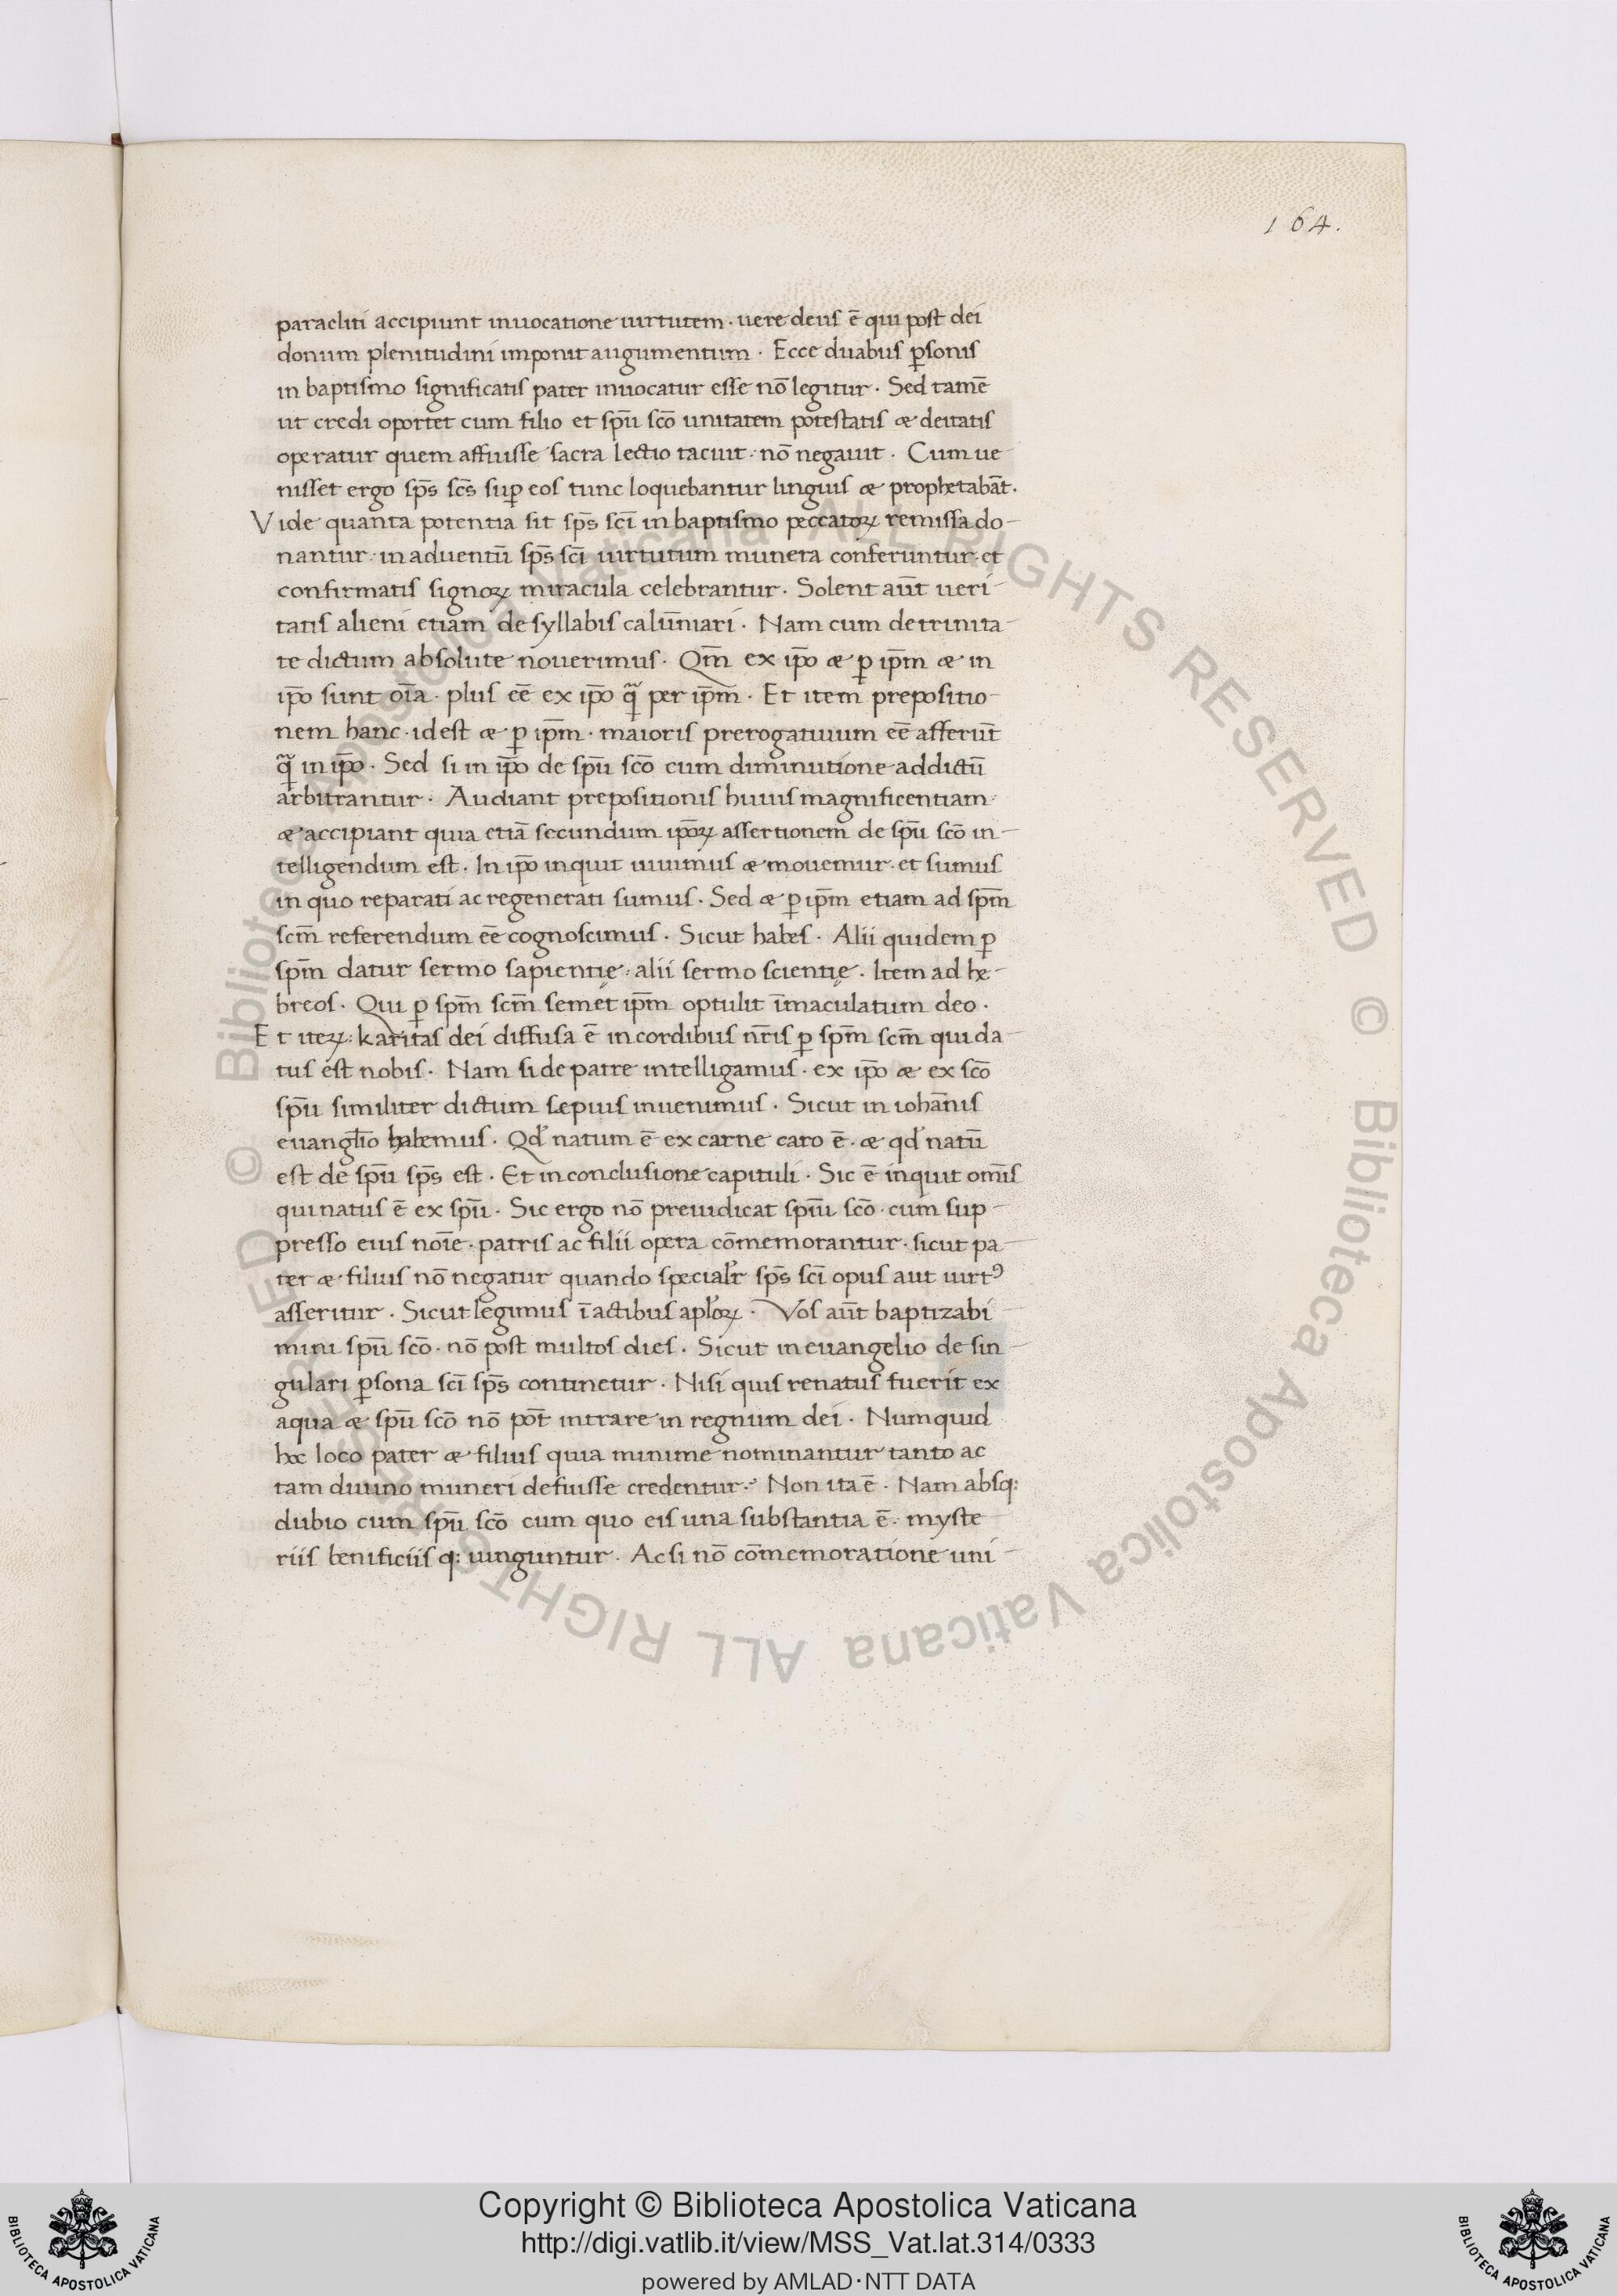 164.
paracliti accipiunt inuocatione uirtutem · uere deus ē qui post dei
donum plenitudini imponit augumentum · Ecce duabus ꝑsonis
in baptismo significatis pater inuocatur esse nō legitur · Sed tamē
ut credi oportet cum filio et sp̄u sc̄o unitatem potestatis æ deitatis
operatur quem affuisse sacra lectio tacuit · nō negauit · Cum ue
nisset ergo sp̄s sc̄s suꝑ eos tunc loquebantur linguis æ prophetabāt ·
Vide quanta potentia sit sp̄s sc̄i in baptismo peccatoꝝ remissa do-
nantur · in aduentū sp̄s sc̄i uirtutum munera conferuntur · et
confirmatis signoꝝ miracula celebrantur · Solent aūt ueri-
tatis alieni etiam de syllabis calūniari · Nam cum de trinita-
te dictum absolute nouerimus · Qm̄ ex ip̄o æ ꝑ ip̄m æ in
ip̄o sunt oīa · plus eē ex ip̄o q̃ per ip̄m · Et item prepositio-
nem hanc · id est æ ꝑ ip̄m · maioris prerogatiuum eē afferūt
q̃ in ip̄o · Sed si in ip̄o de sp̄u sc̄o cum diminutione addictū
arbitrantur · Audiant prepositionis huius magnificentiam
æ accipiant quia etiā secundum ip̄oꝝ assertionem de sp̄u sc̄o in-
telligendum est · In ip̄o inquit uiuimus æ mouemur · et sumus
in quo reparati ac regenerati sumus · Sed æ ꝑ ip̄m etiam ad sp̄m
sc̄m referendum eē cognoscimus · Sicut habes · Alii quidem ꝑ
sp̄m datur sermo sapientię · alii sermo scientię · Item ad he-
breos · Qui ꝑ sp̄m sc̄m semet ip̄m optulit īmaculatum deo ·
Et iteꝝ : karitas dei diffusa ē in cordibus nr̄is ꝑ sp̄m sc̄m qui da-
tus est nobis · Nam si de patre intelligamus · ex ip̄o æ ex sc̄o
sp̄u similiter dictum sepius inuenimus · Sicut in iohānis
euangl̄io habemus · Qd̓ natum ē ex carne caro ē · æ qd̓ natū
est de sp̄u sp̄s est · Et in conclusione capituli · Sic ē inquit om̄is
qui natus ē ex sp̄u · Sic ergo nō preiudicat spīu sc̄o · cum sup-
presso eius noīe · patris ac filii opera cōmemorantur · sicut pa-
ter æ filius nō negatur quando specialr̓ sp̄s sc̄i opus aut uirtꝰ
asseritur · Sicut legimus ī actibus apl̓oꝝ · Vos aūt baptizabi-
mini sp̄u sc̄o · nō post multos dies · Sicut in euangelio de sin-
gulari ꝑsona sc̄i sp̄s continetur · Nisi quis renatus fuerit ex
aqua æ sp̄u sc̄o nō pōt intrare in regnum dei · Numquid
hoc loco pater æ filius quia minime nominantur tanto ac
tam diuino muneri defuisse credentur ? Non ita ē · Nam absq:
dubio cum sp̄u sc̄o cum quo eis una substantia ē · myste
riis benificiis q: iunguntur · Ac si nō cōmemoratione uni-
© Biblioteca Apostolica Vaticana ALL RIGHTS RESERVED © Biblioteca Apostolica Vaticana ALL RIGHTS RESERVED
Copyright © Biblioteca Apostolica Vaticana
http://digi.vatlib.it/view/MSS_Vat.lat.314/0333
powered by AMLAD·NTT DATA
BIBLIOTECA APOSTOLICA VATICANA
BIBLIOTECA APOSTOLICA VATICANA